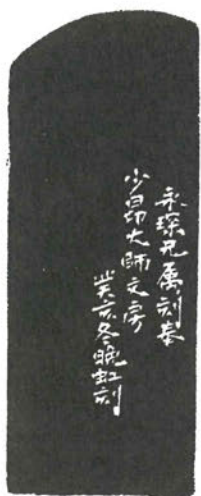 永琛兄属刻奉
少昂大師文房
癸亥冬晚虹刻